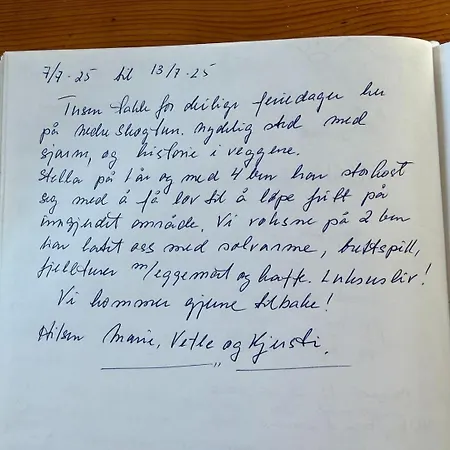 7/7-25 til 13/7-25
Tusen takk for deilige feriedager her
på nedre Skogtun. Nydelig sted med
sjarm, og historie i veggene.
Stella på 1 år og med 4 ben har storkost
seg med å få lov til å løpe fritt på
inngjerdet område. Vi voksne på 2 ben
har ladet oss med solvarme, brettspill,
fjellturer m/eggemat og kaffe. Luksusliv!
Vi kommer gjerne tilbake!
Hilsen Marie, Vetle og Kjersti.